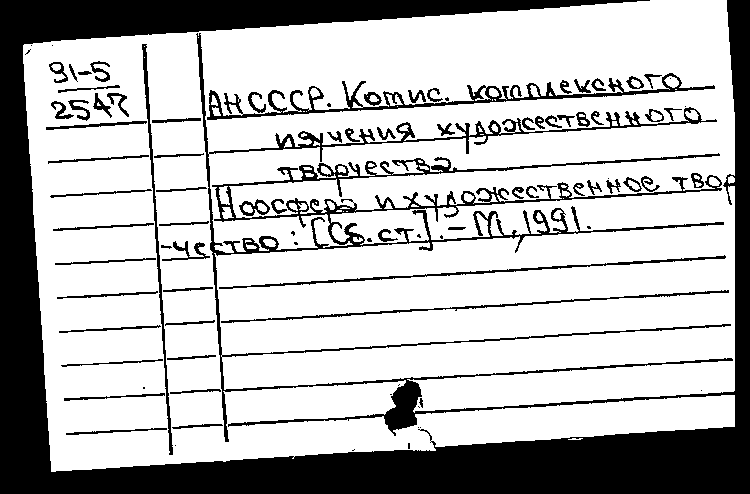 91-5
2547
АН СССР. Комис. комплексного
изучения художественного
творчества.
Ноосфера и художественное твор
-чество: [Сб. ст.]. - М., 1991.